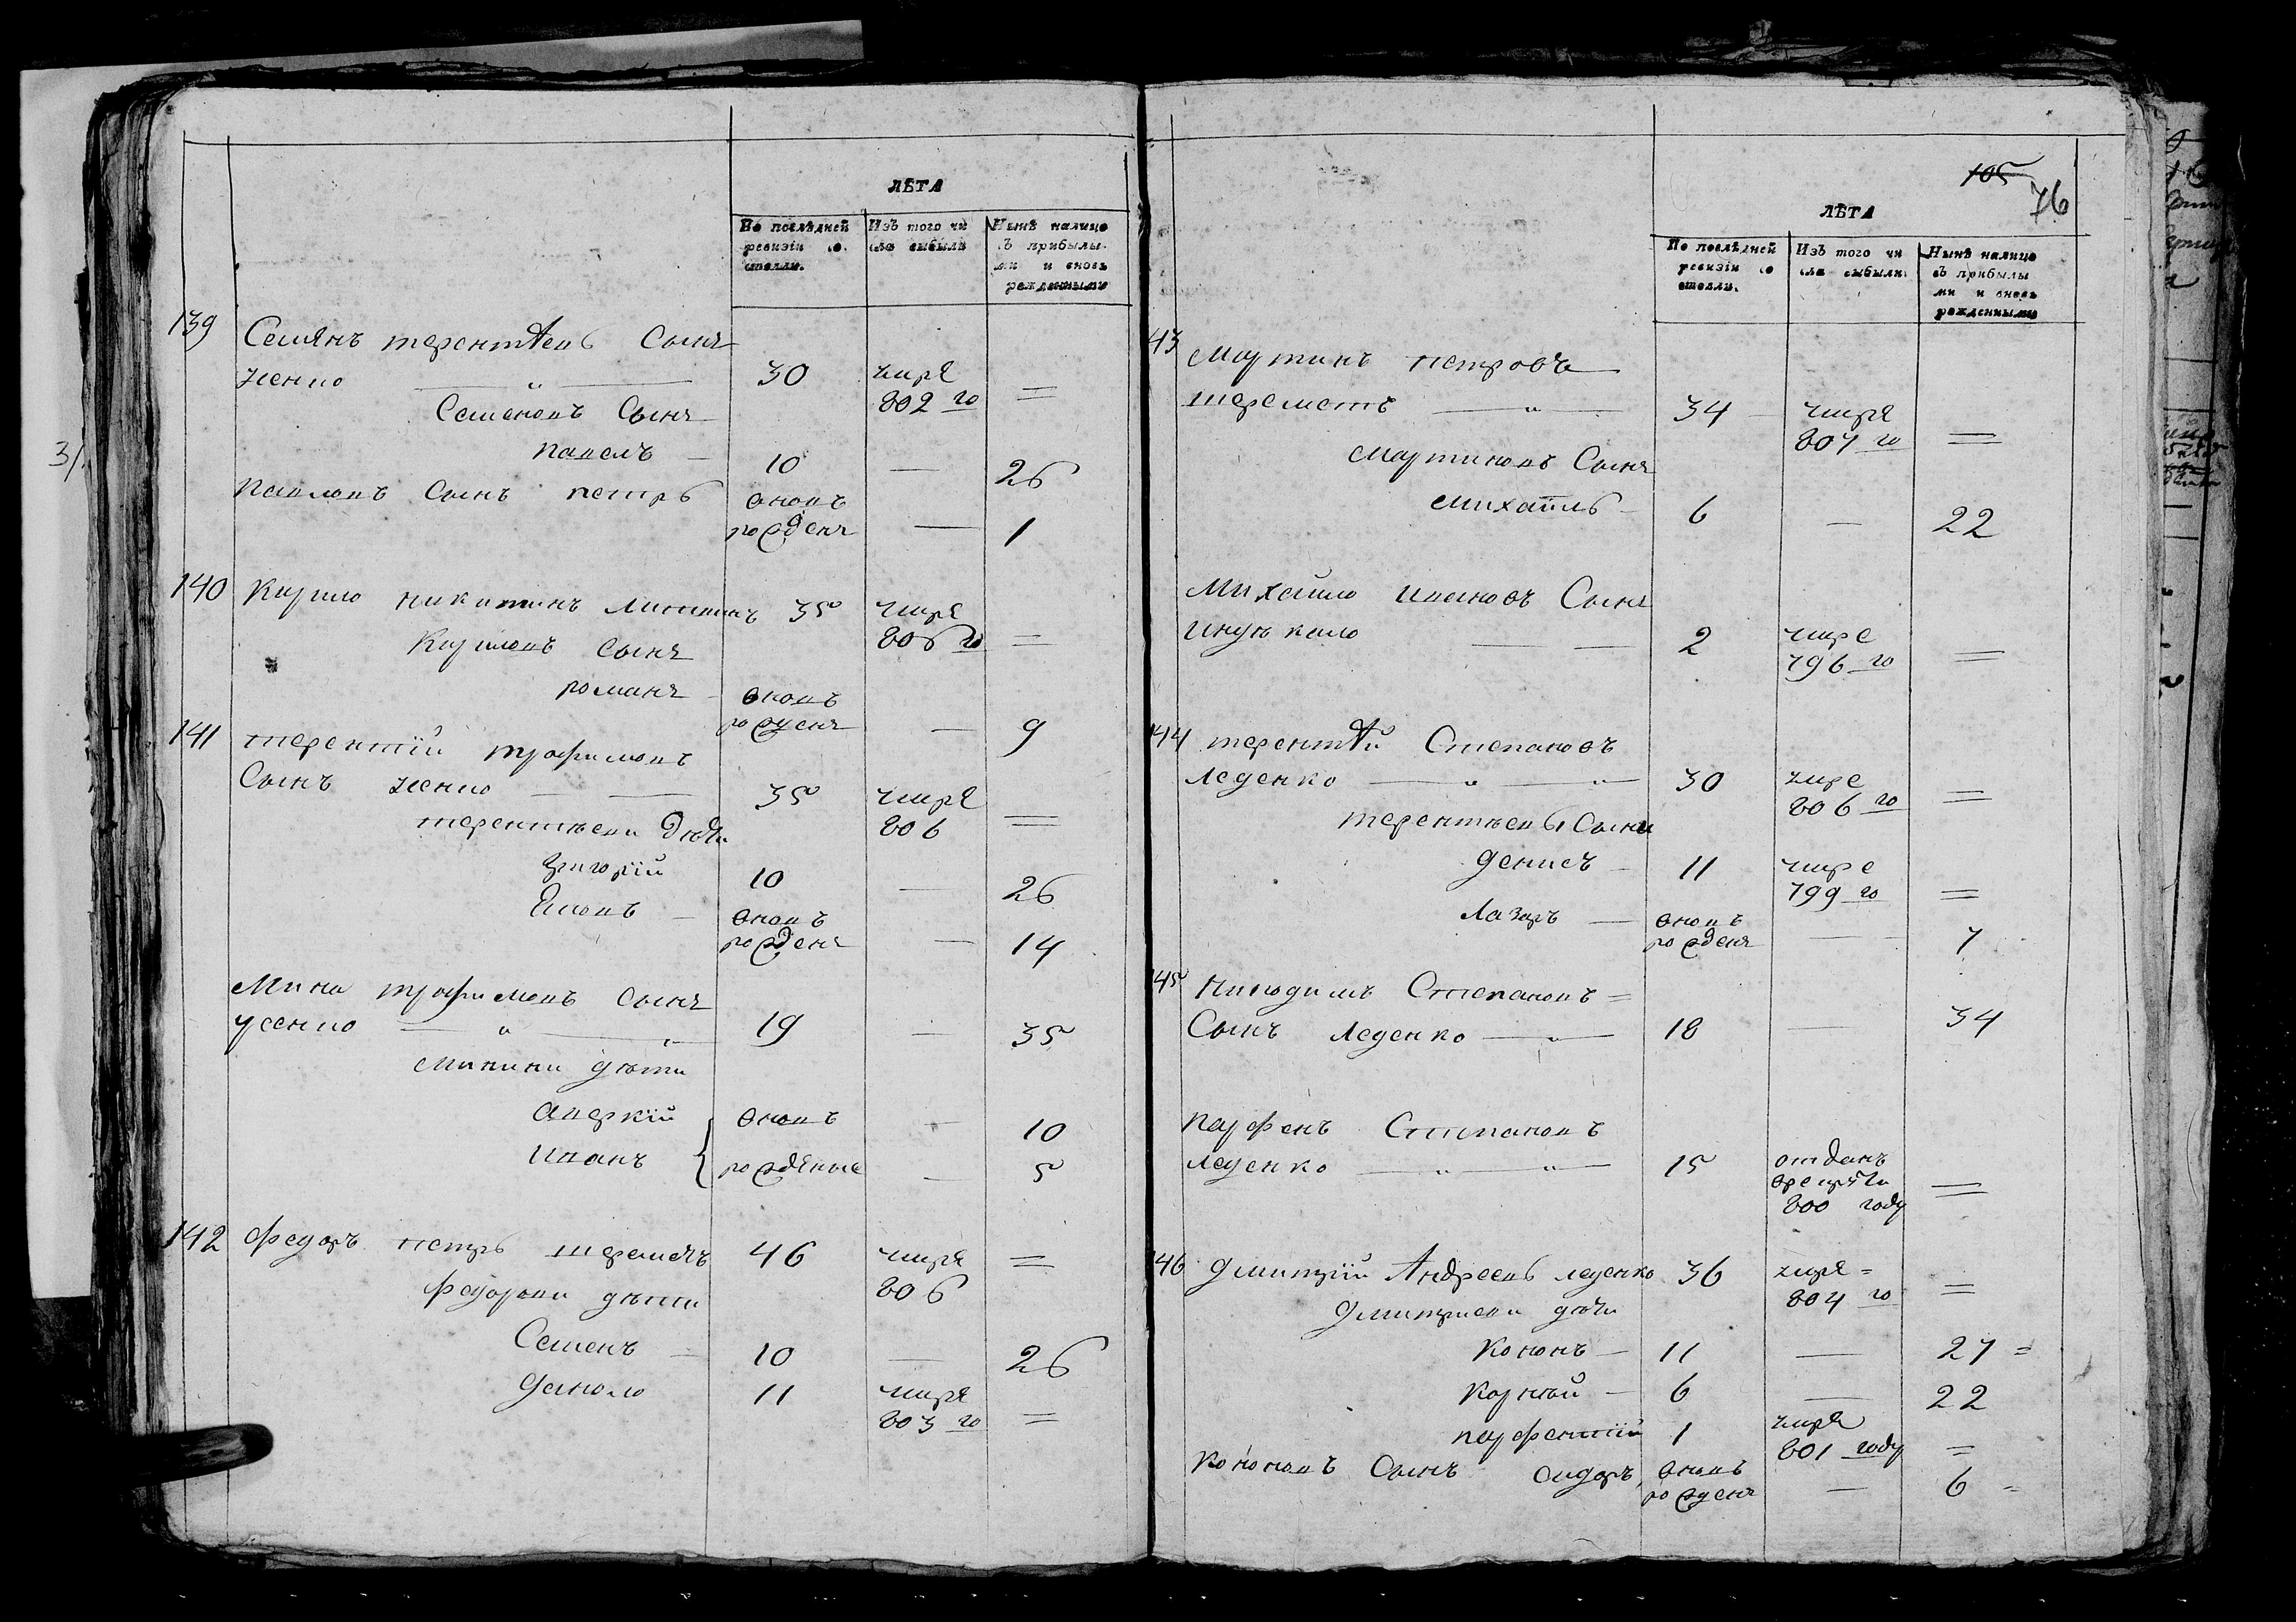 ЛѢТА
По послѣдней ревизіи состояло.
Изъ того числа выбыло
Нынѣ налицо съ прибылыми и вновь рожденными
139 Семянъ терентьевъ Сынъ
30 умре 802 го =
Семеновъ Сынъ
павелъ — 10 — 26
павловъ Сынъ петръ вновь рожденъ — 1
140 Кирило никитинъ 35 умре 806 го =
Кириловъ Сынъ
романъ — вновь рожденъ — 9
141 терентій трофимовъ
Сынъ 35 умре 806 =
терентьеви дѣти
григорій 10 — 26
вновь рожденъ — 14
Мина трофимовъ Сынъ
усенко — " — " 19 — 35
минины дѣти
аверкій вновь — 10
иванъ рожденые — 5
142 федоръ петръ шереметъ 46 умре 806 =
федорови дѣти
Семенъ — 10 — 26
данило 11 умре 803 го =
105
76
ЛѢТА
По послѣдней ревизіи состояло.
Изъ того числа выбыло
Нынѣ налицо съ прибылыми и вновь рожденными
43 мартинъ петровъ
шереметъ — " — 34 умре 807 го =
мартиновъ Сынъ
михаилъ — 6 — 22
Михайло ивановъ Сынъ
2 умре 796 го =
144 терентій Степановъ
леденко — " — " 30 умре 806 го =
терентьевы Сыни
денисъ — 11 умре 799 го =
лазаръ — вновь рожденъ — 7
145 никодимъ Степановъ =
Сынъ леденко — " — 18 — 34
парфенъ Степановъ
леденко — " — " 15 отданъ врекруты 800 году =
146 дмитрій Андреевъ леденко 36 умре = 804 го =
дмитриеви дѣти
кононъ — 11 — 27 =
корній — 6 — 22
парфентій 1 умре 801 году =
кононовъ Сынъ сидоръ, вновь рожденъ — 6 =